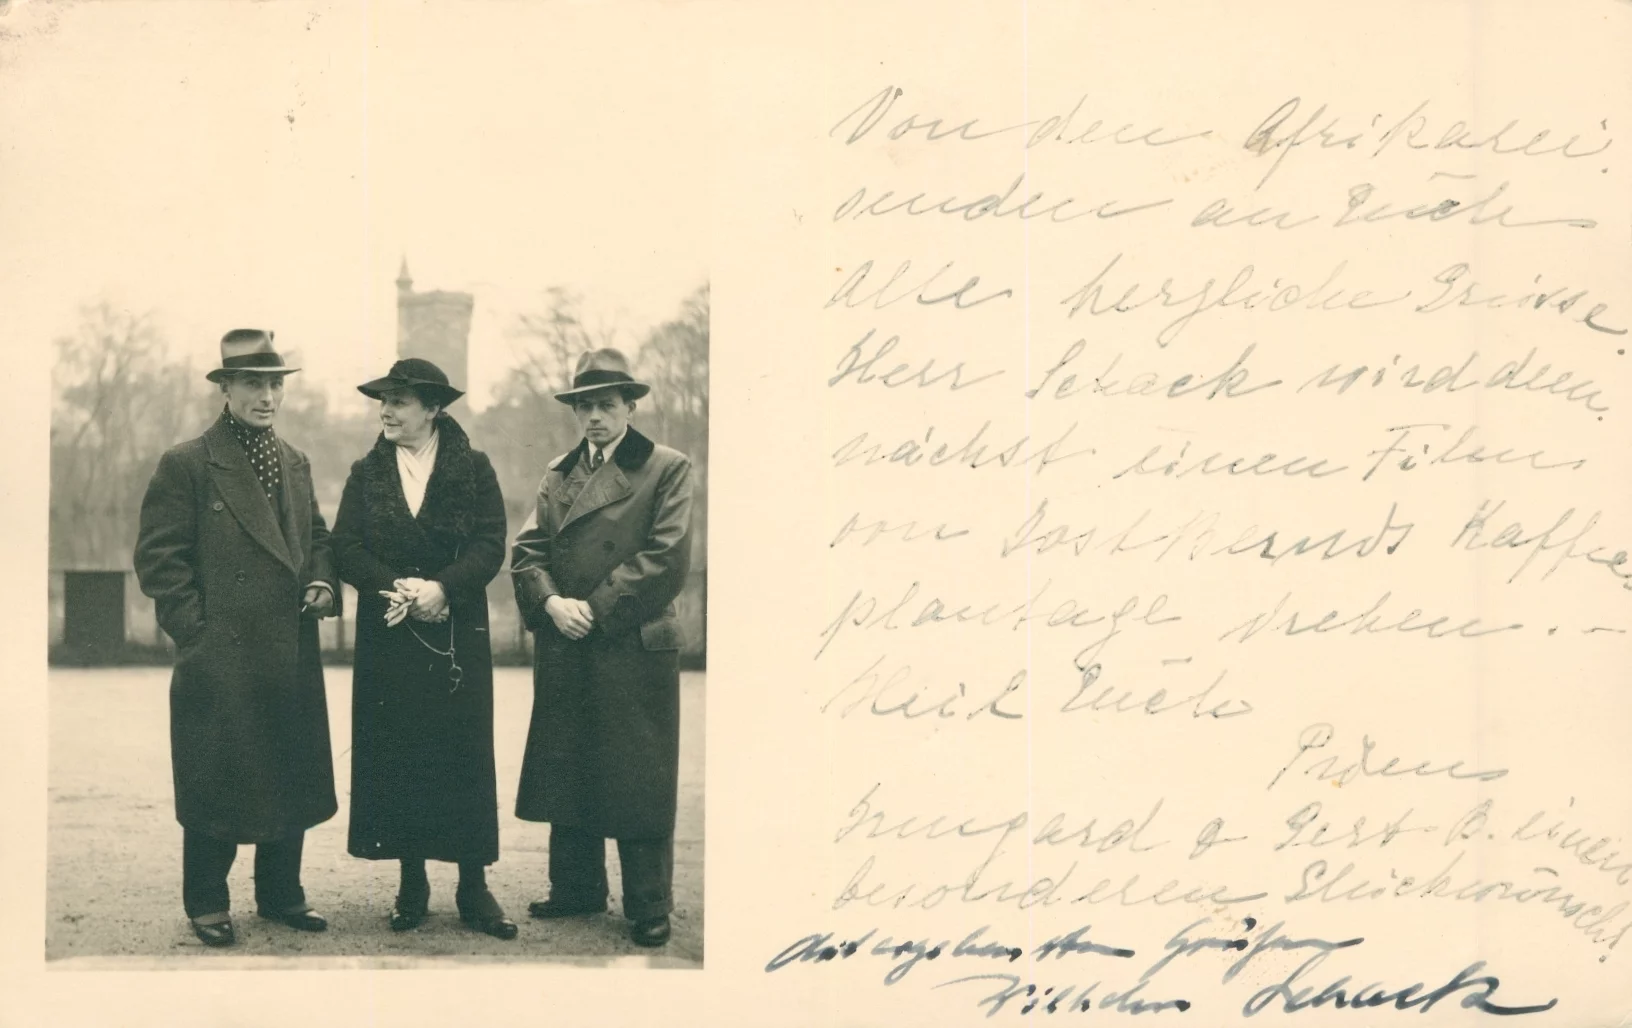 Von den Afrikarei.
senden an Euch
Alle herzliche Grüsse.
Herr Schack wird dem
nächst einen Film
von Jost Bernds Kaffee
plantage drehen. -
Heil Euch
Irmgard & Gert B. einen
besonderen Glückwünsch!
Mit ergebensten Grüßen
Wilhelm Schack